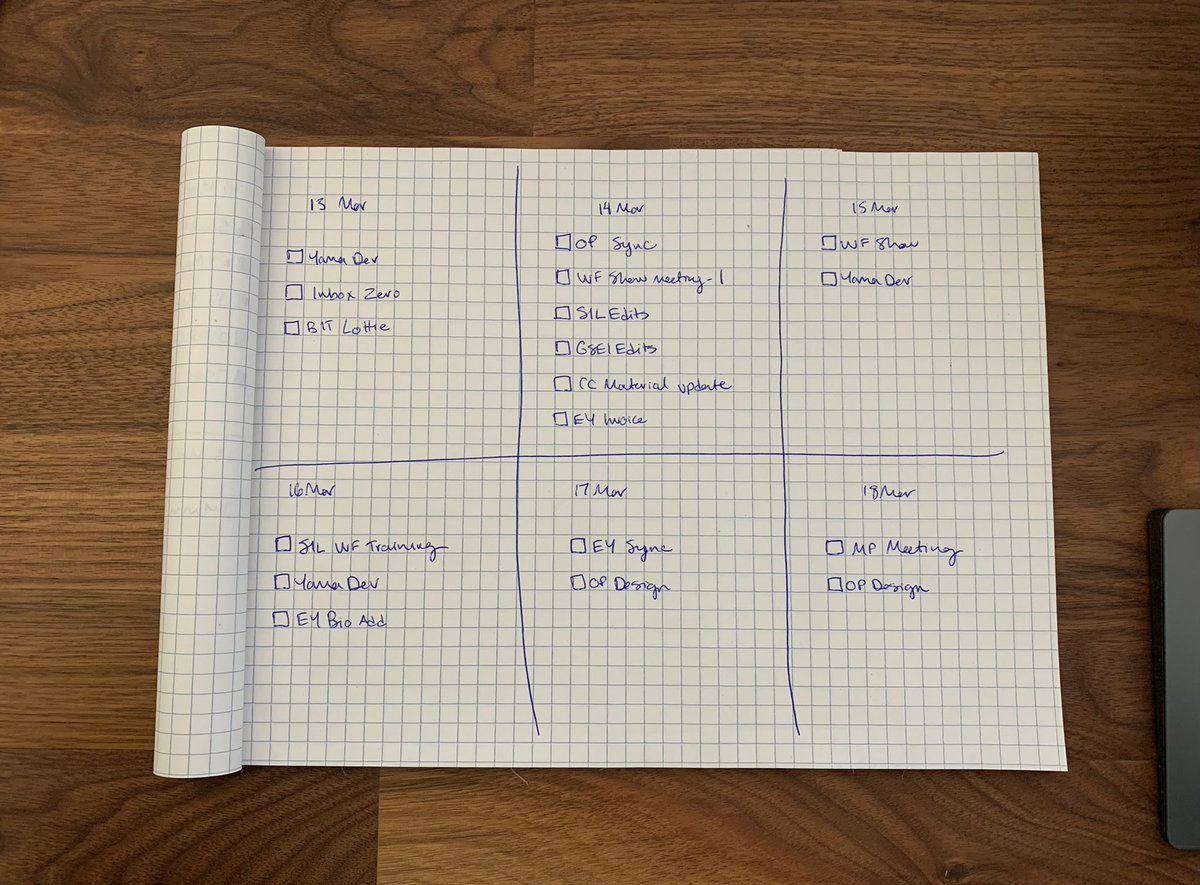 13 Mar
Yama Dev
Inbox Zero
BIT Lottie
14 Mar
OP Sync
WF Show meeting - 1
SIL Edits
GSEI Edits
CC Material update
EY Invoice
15 Mar
WF Show
Yama Dev
16 Mar
SIL WF Training
Yama Dev
EY Bio Add
17 Mar
EY Sync
OP Design
18 Mar
MP Meeting
OP Design